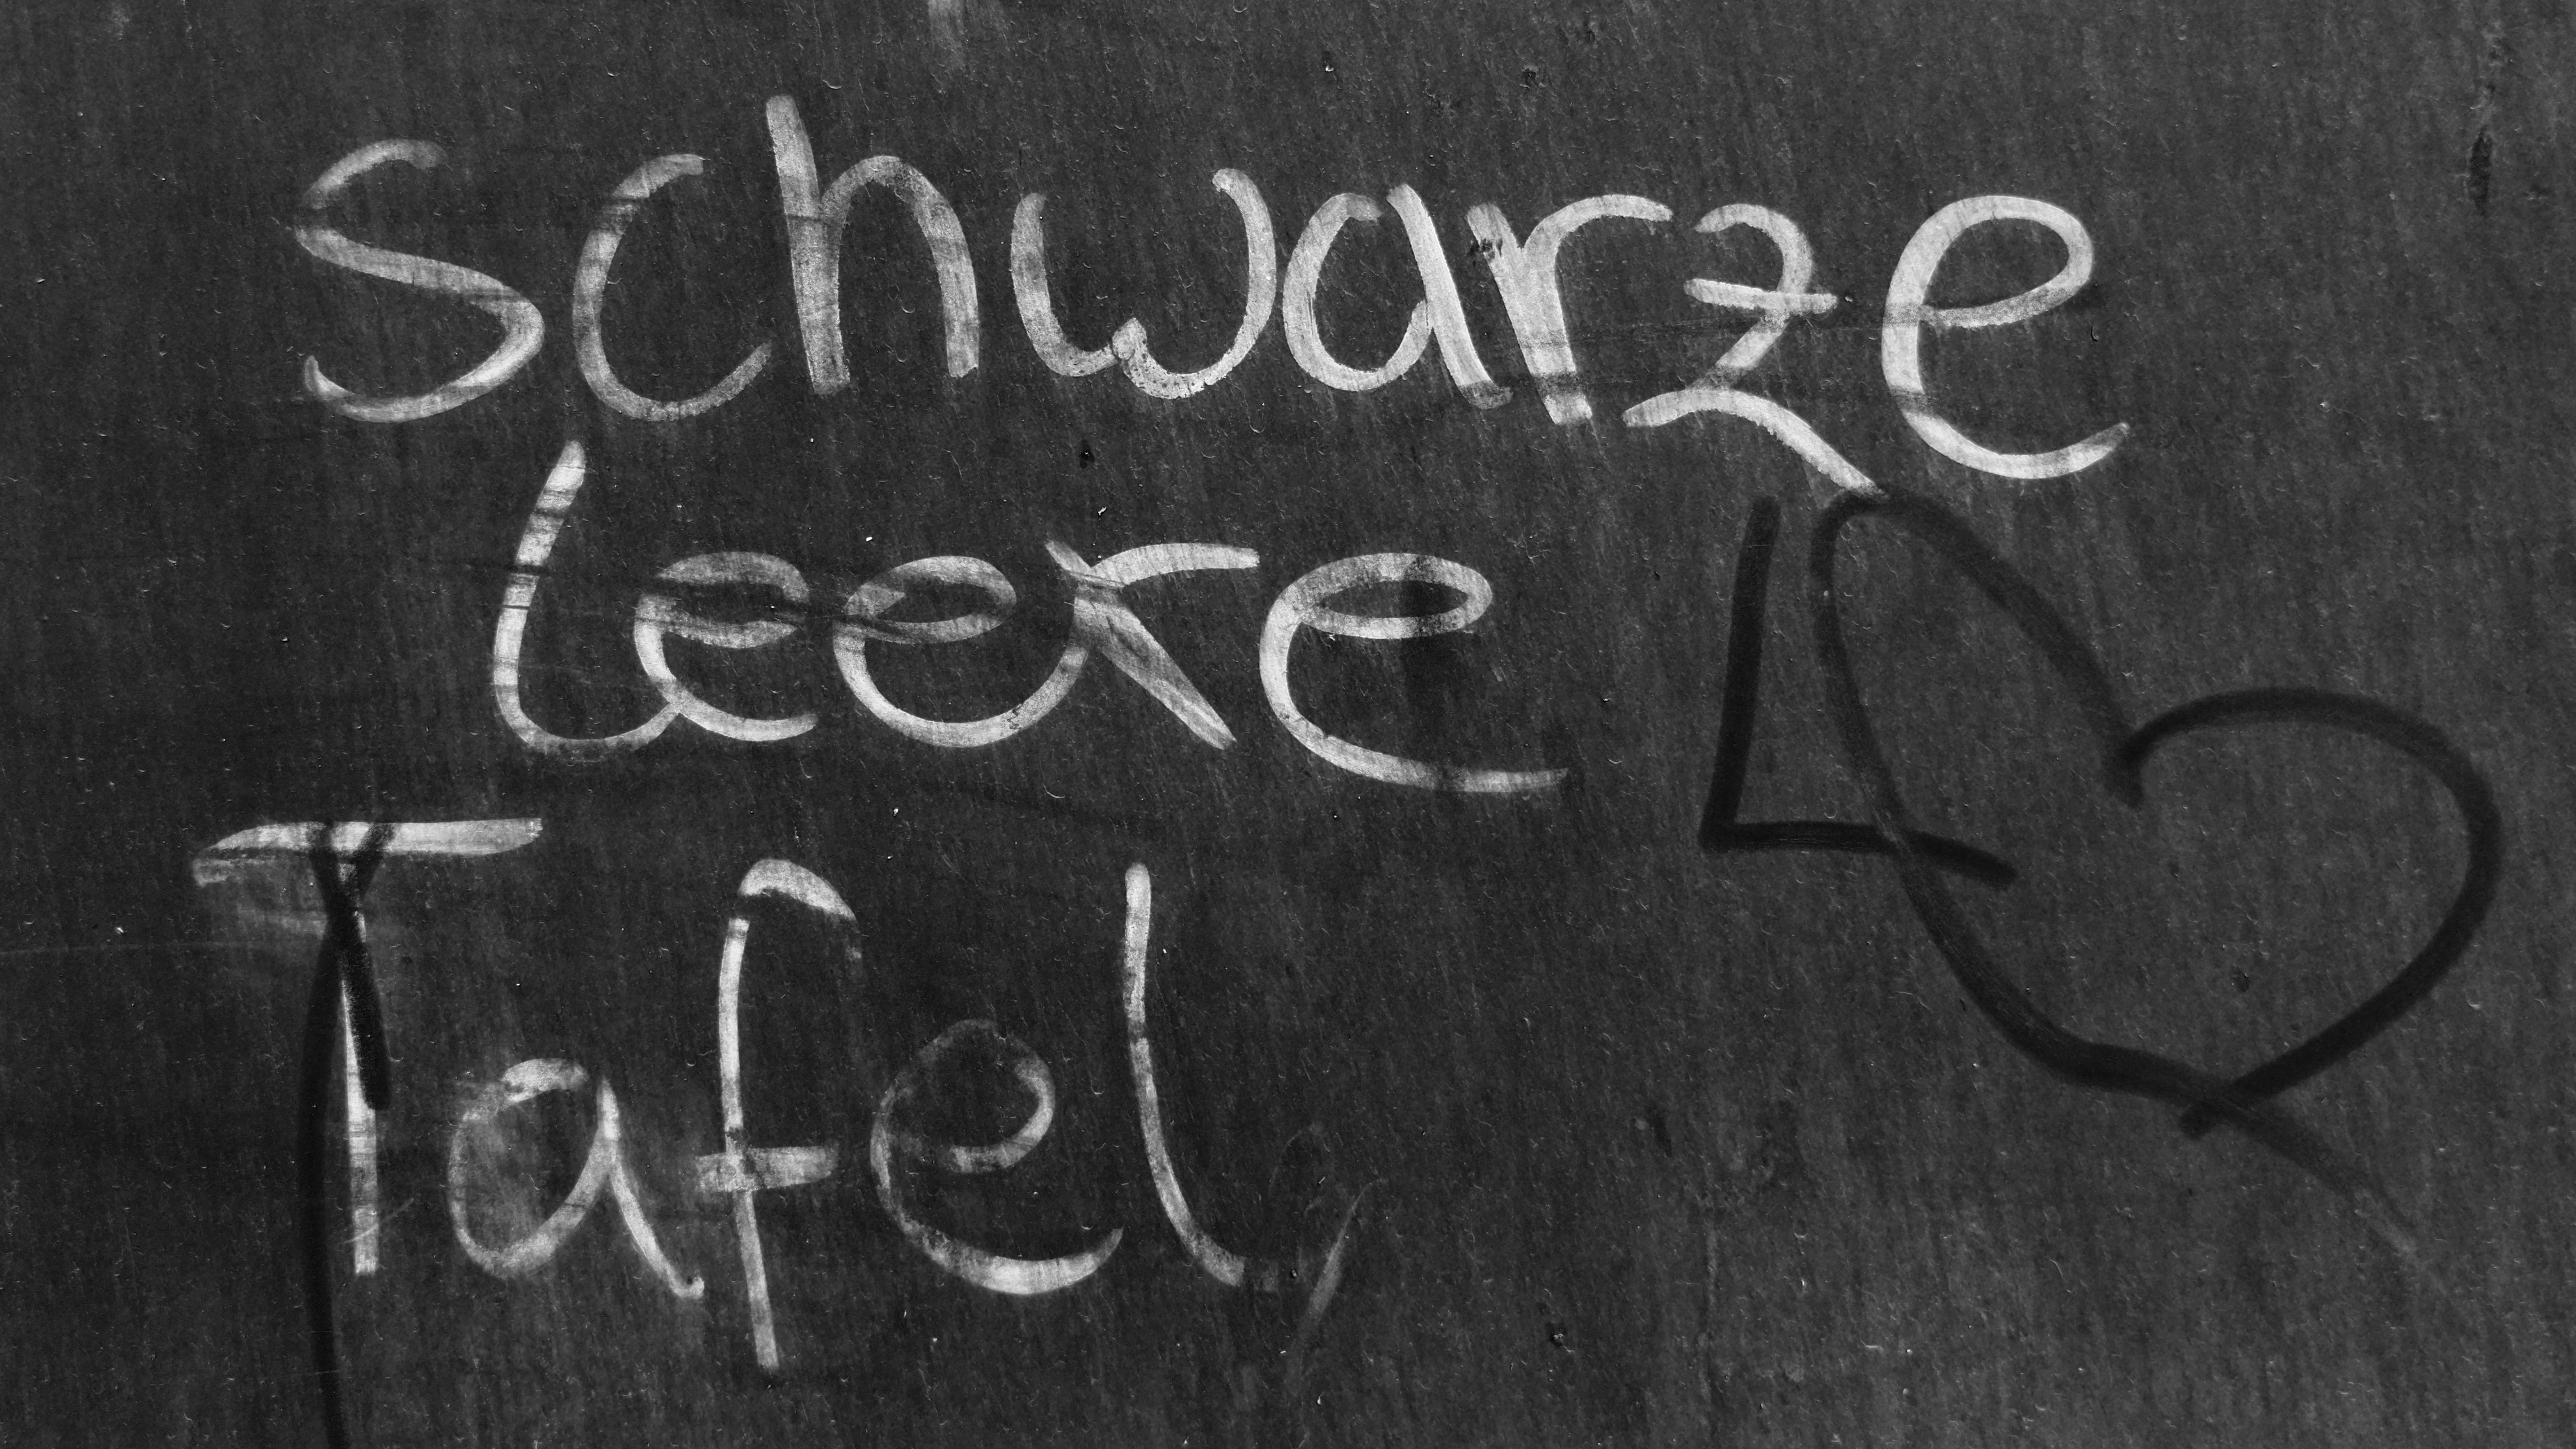 schwarze
leere
Tafel,